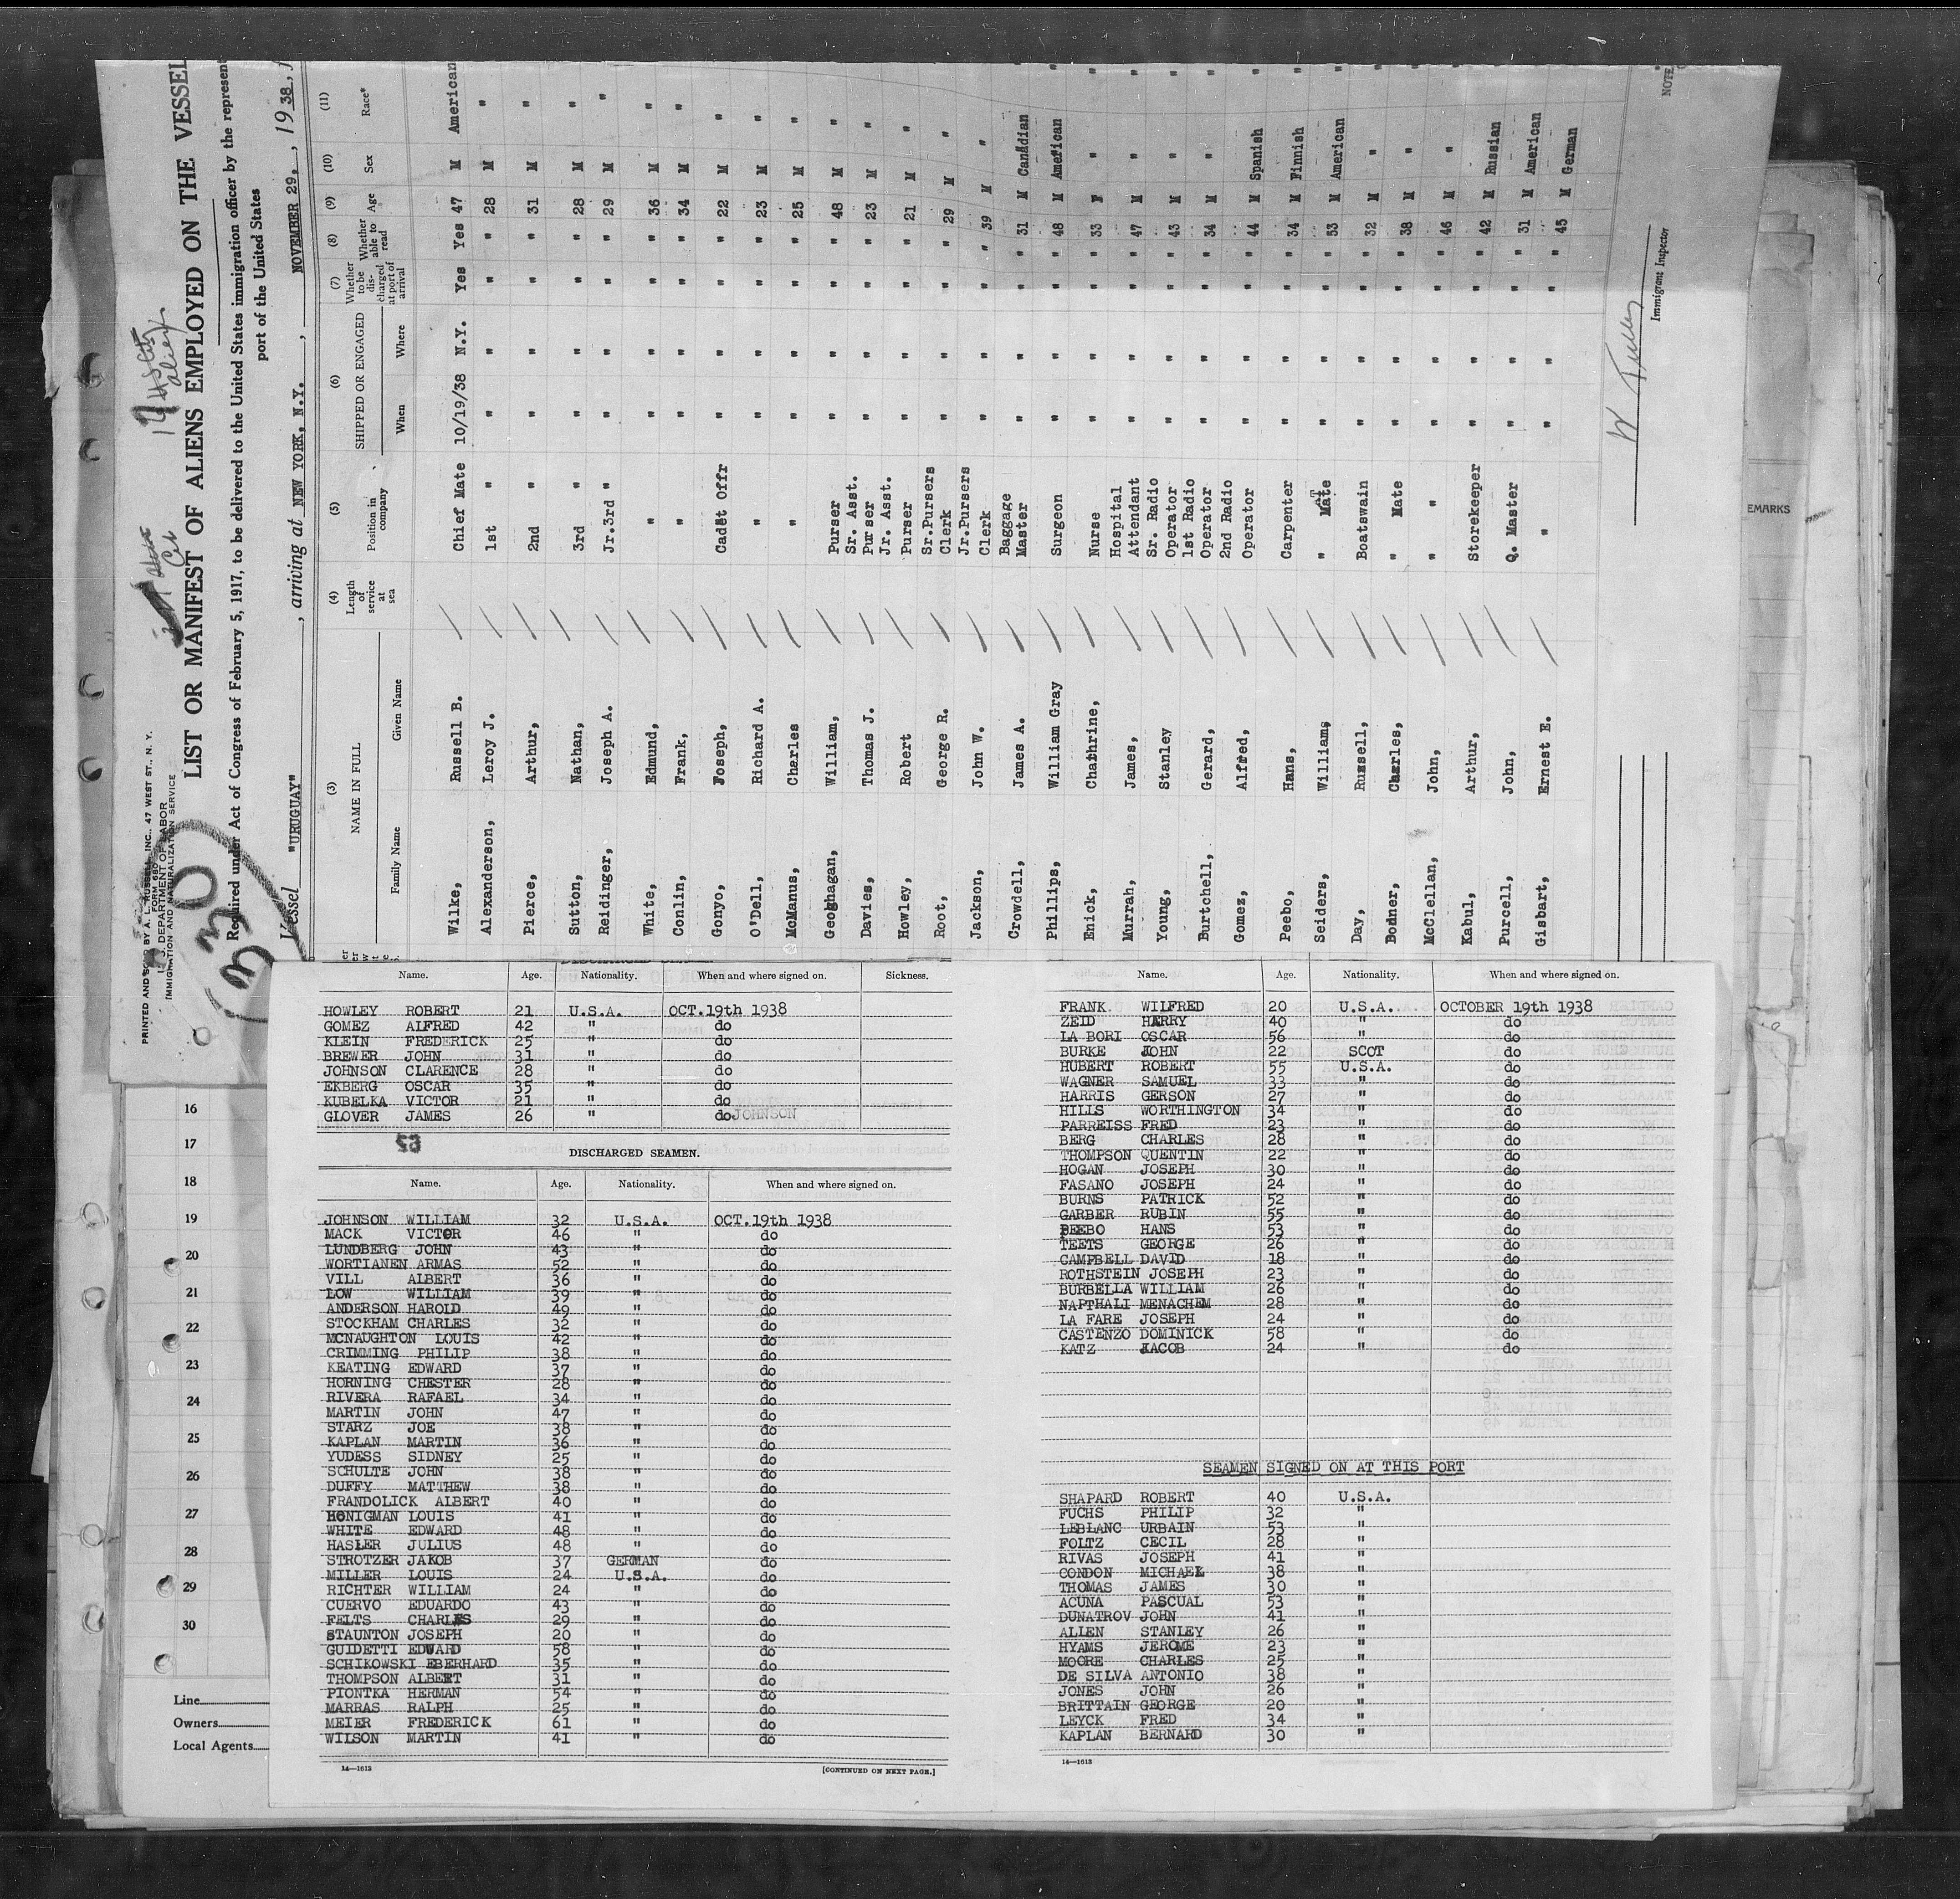 PRINTED AND SOLD BY A. L. RUSSELL, INC., 47 WEST ST., N. Y.
FORM 680
U. S. DEPARTMENT OF LABOR
IMMIGRATION AND NATURALIZATION SERVICE
630
LIST OR MANIFEST OF ALIENS EMPLOYED ON THE VESSEL
Required under Act of Congress of February 5, 1917, to be delivered to the United States immigration officer by the represent
port of the United States
Vessel "URUGUAY" , arriving at NEW YORK, N.Y. , NOVEMBER 29. , 1938, f
(3) (4) (5) (6) (7) (8) (9) (10) (11)
NAME IN FULL Length of service at sea Position in company SHIPPED OR ENGAGED Whether to be discharged at port of arrival Whether able to read Age Sex Race*
Family Name Given Name When Where
Wilke, Russell B. Chief Mate 10/19/38 N.Y. Yes Yes 47 M American
Alexanderson, Leroy J. 1st " " " " " 28 M "
Pierce, Arthur, 2nd " " " " " 31 M "
Sutton, Nathan, 3rd " " " " " 28 M "
Reidinger, Joseph A. Jr.3rd " " " " " 29 M "
White, Edmund, " " " " " 36 M "
Conlin, Frank, " " " " " 34 M "
Gonyo, Joseph, Cadet Offr " " " " 22 M "
O'Dell, Richard A. " " " " " 23 M "
McManus, Charles " " " " " 25 M "
Geoghagan, William, Purser " " " " 48 M "
Davies, Thomas J. Sr. Asst. Purser " " " " 23 M "
Howley, Robert Jr. Asst. Purser " " " " 21 M "
Root, George R. Sr.Pursers Clerk " " " " 29 M "
Jackson, John W. Jr.Pursers Clerk " " " " 39 M "
Crowdell, James A. Baggage Master " " " " 31 M Canadian
Phillips, William Gray Surgeon " " " " 48 M American
Enick, Chathrine, Nurse " " " " 33 F "
Murrah, James, Hospital Attendant " " " " 47 M "
Young, Stanley Sr. Radio Operator " " " " 43 M "
Burtchell, Gerard, 1st Radio Operator " " " " 34 M "
Gomez, Alfred, 2nd Radio Operator " " " " 44 M Spanish
Peebo, Hans, Carpenter " " " " 34 M Finnish
Seiders, William, " Mate " " " " 53 M American
Day, Russell, Boatswain " " " " 32 M "
Bodner, Charles, " Mate " " " " 38 M "
McClellan, John, " " " " " " 46 M "
Kabul, Arthur, Storekeeper " " " " 42 M Russian
Purcell, John, Q. Master " " " " 31 M American
Gisbart, Ernest E. " " " " " 45 M German
Immigrant Inspector
NOTE
EMARKS
Name. Age. Nationality. When and where signed on. Sickness.
HOWLEY ROBERT 21 U.S.A. OCT.19th 1938
GOMEZ ALFRED 42 " do
KLEIN FREDERICK 25 " do
BREWER JOHN 31 " do
JOHNSON CLARENCE 28 " do
EKBERG OSCAR 35 " do
KUBELKA VICTOR 21 " do
GLOVER JAMES 26 " do JOHNSON
63
DISCHARGED SEAMEN.
Name. Age. Nationality. When and where signed on.
JOHNSON WILLIAM 32 U.S.A. OCT.19th 1938
MACK VICTOR 46 " do
LUNDBERG JOHN 43 " do
WORTIANEN ARMAS 52 " do
VILL ALBERT 36 " do
LOW WILLIAM 39 " do
ANDERSON HAROLD 49 " do
STOCKHAM CHARLES 32 " do
MCNAUGHTON LOUIS 42 " do
CRIMMING PHILIP 38 " do
KEATING EDWARD 37 " do
HORNING CHESTER 28 " do
RIVERA RAFAEL 34 " do
MARTIN JOHN 47 " do
STARZ JOE 38 " do
KAPLAN MARTIN 36 " do
YUDESS SIDNEY 25 " do
SCHULTE JOHN 38 " do
DUFFY MATTHEW 38 " do
FRANDOLICK ALBERT 40 " do
HONIGMAN LOUIS 41 " do
WHITE EDWARD 48 " do
HASLER JULIUS 48 " do
STROTZER JAKOB 37 GERMAN do
MILLER LOUIS 24 U.S.A. do
RICHTER WILLIAM 24 " do
CUERVO EDUARDO 43 " do
FELTS CHARLES 29 " do
STAUNTON JOSEPH 20 " do
GUIDETTI EDWARD 58 " do
SCHIKOWSKI EBERHARD 35 " do
THOMPSON ALBERT 31 " do
PIONTKA HERMAN 54 " do
MARRAS RALPH 25 " do
MEIER FREDERICK 61 " do
WILSON MARTIN 41 " do
14—1613 [CONTINUED ON NEXT PAGE.]
Name. Age. Nationality. When and where signed on.
FRANK WILFRED 20 U.S.A. OCTOBER 19th 1938
ZEID HARRY 40 " do
LA BORI OSCAR 56 " do
BURKE JOHN 22 SCOT do
HUBERT ROBERT 55 U.S.A. do
WAGNER SAMUEL 33 " do
HARRIS GERSON 27 " do
HILLS WORTHINGTON 34 " do
PARREISS FRED 23 " do
BERG CHARLES 28 " do
THOMPSON QUENTIN 22 " do
HOGAN JOSEPH 30 " do
FASANO JOSEPH 24 " do
BURNS PATRICK 52 " do
GARBER RUBIN 55 " do
PEEBO HANS 53 " do
TEETS GEORGE 26 " do
CAMPBELL DAVID 18 " do
ROTHSTEIN JOSEPH 23 " do
BURBELLA WILLIAM 26 " do
NAPTHALI MENACHEM 28 " do
LA FARE JOSEPH 24 " do
CASTENZO DOMINICK 58 " do
KATZ JACOB 24 " do
SEAMEN SIGNED ON AT THIS PORT
SHAPARD ROBERT 40 U.S.A.
FUCHS PHILIP 32 "
LEBLANC URBAIN 53 "
FOLTZ CECIL 28 "
RIVAS JOSEPH 41 "
CONDON MICHAEL 38 "
THOMAS JAMES 30 "
ACUNA PASCUAL 53 "
DUNATROV JOHN 41 "
ALLEN STANLEY 26 "
HYAMS JEROME 23 "
MOORE CHARLES 25 "
DE SILVA ANTONIO 38 "
JONES JOHN 26 "
BRITTAIN GEORGE 20 "
LEYCK FRED 34 "
KAPLAN BERNARD 30 "
14—1613
16
17
18
19
20
21
22
23
24
25
26
27
28
29
30
Line
Owners
Local Agents